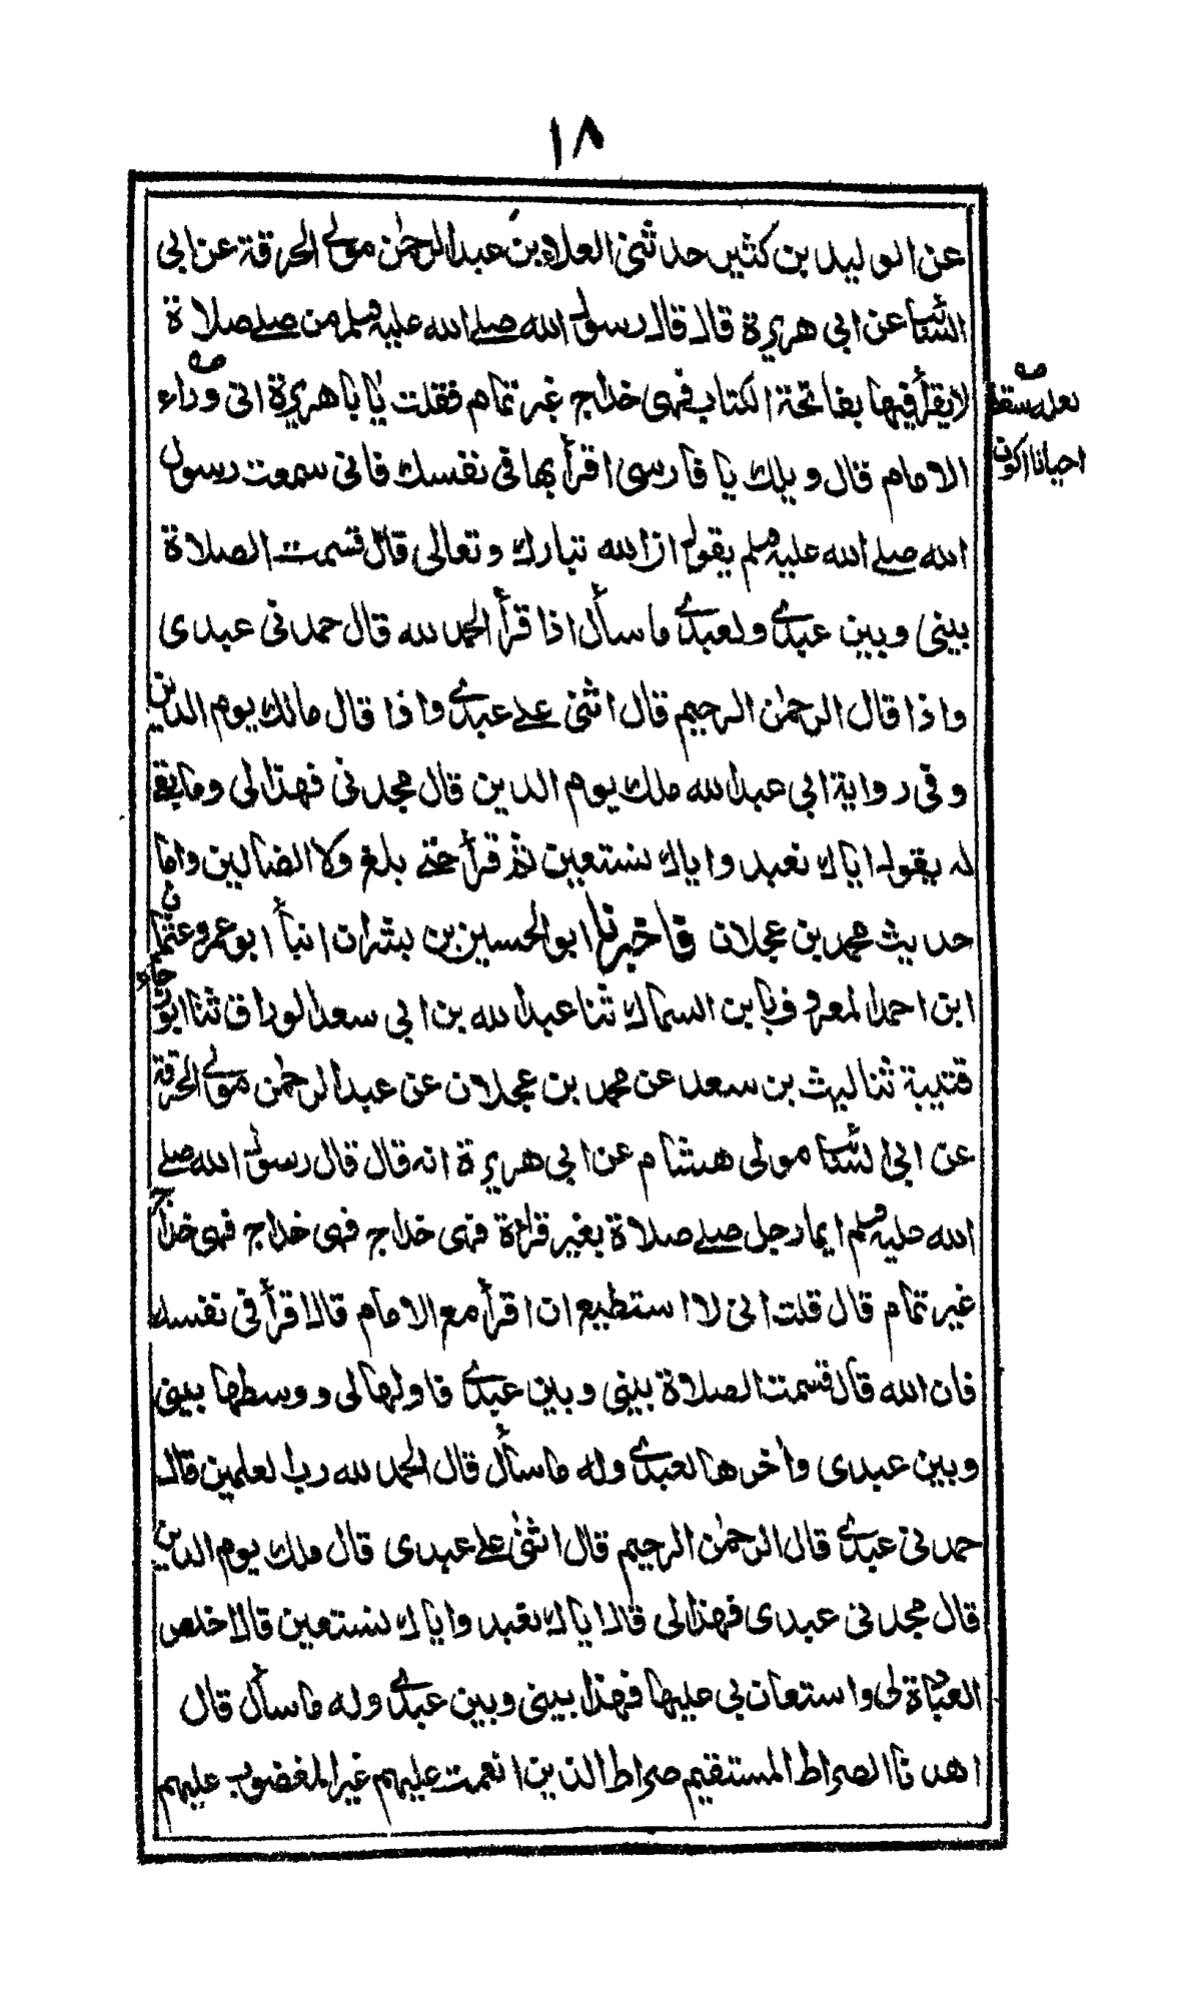 ١٨
عن الوليد بن كثير حدثني العلاء بن عبد الرحمٰن مولى الحرقة عن ابي
السائب عن ابي هريرة قال قال رسول الله صلى الله عليه وسلم من صلى صلاة
لا يقرأ فيها بفاتحة الكتاب فهي خداج غير تمام فقلت يا با هريرة اني وراء
لعله سقط
احيانا اكون
الامام قال ويلك يا فارسي اقرأ بها في نفسك فاني سمعت رسول
الله صلى الله عليه وسلم يقول ان الله تبارك وتعالى قال قسمت الصلاة
بيني وبين عبدي ولعبدي ما سأل اذا قرأ الحمد لله قال حمدني عبدي
واذا قال الرحمٰن الرحيم قال اثنى على عبدي واذا قال مالك يوم الدين
وفي رواية ابي عبد الله ملك يوم الدين قال مجدني فهذا لي وما بقي
له يقول اياك نعبد واياك نستعين ثم قرأ حتى بلغ ولا الضالين واما
حديث محمد بن عجلان فاخبرنا ابو الحسين بن بشران انبأ ابو عمرو عثمان
ابن احمد المعروف بابن السماك ثنا عبد الله بن ابي سعد الوراق ثنا ابو رجاء
قتيبة ثنا ليث بن سعد عن محمد بن عجلان عن عبد الرحمٰن مولى الحرقة
عن ابي السائب مولى هشام عن ابي هريرة انه قال قال رسول الله صلى
الله عليه وسلم ايما رجل صلى صلاة بغير قراءة فهي خداج فهي خداج فهي خداج
غير تمام قال قلت اني لا استطيع ان اقرأ مع الامام قال اقرأ في نفسك
فان الله قال قسمت الصلاة بيني وبين عبدي فاولها لي ووسطها بيني
وبين عبدي واخرها لعبدي وله ما سأل قال الحمد لله رب العلمين قال
حمدني عبدي قال الرحمٰن الرحيم قال اثنى على عبدي قال ملك يوم الدين
قال مجدني عبدي فهذا لي قال اياك نعبد واياك نستعين قال اخلص
العبادة لي واستعان بي عليها فهذا بيني وبين عبدي وله ما سأل قال
اهدنا الصراط المستقيم صراط الذين انعمت عليهم غير المغضوب عليهم